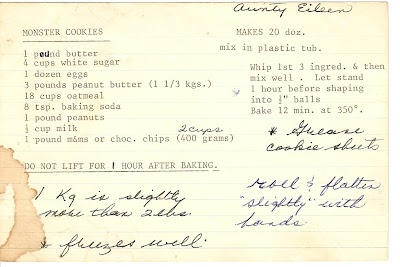 Aunty Eileen
MONSTER COOKIES
MAKES 20 doz.
mix in plastic tub.
1 pound butter
4 cups white sugar
1 dozen eggs
3 pounds peanut butter (1 1/3 kgs.)
18 cups oatmeal
8 tsp. baking soda
1 pound peanuts
½ cup milk
2 cups
1 pound m&ms or choc. chips (400 grams)
Whip 1st 3 ingred. & then
mix well . Let stand
1 hour before shaping
into ½" balls
Bake 12 min. at 350°.
* Grease
cookie sheets
DO NOT LIFT FOR 1 HOUR AFTER BAKING.
1 Kg is slightly
more than 2 lbs.
* freezes well.
roll & flatten
"slightly" with
hands